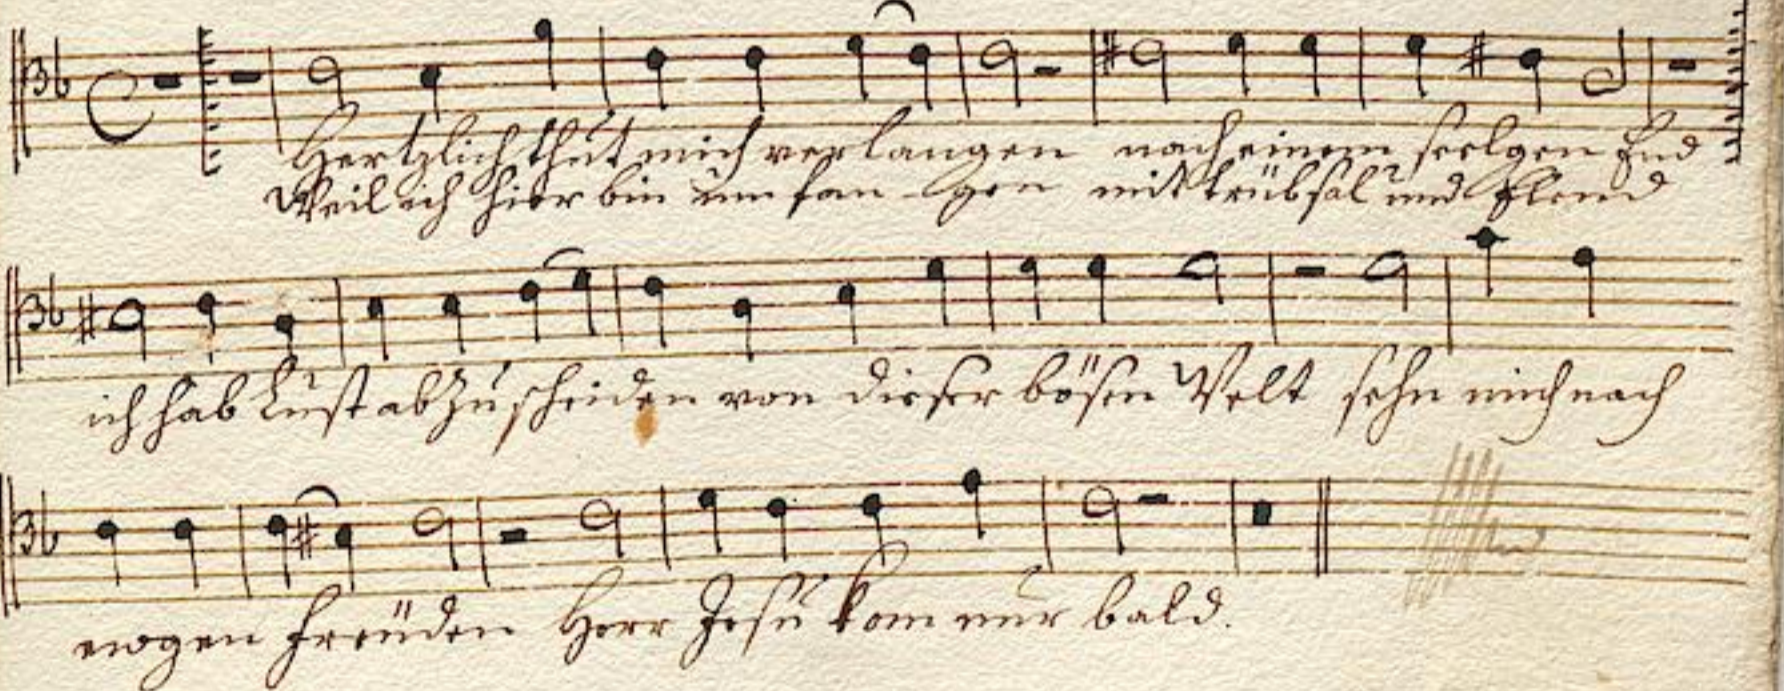 Hertzlich thut mich verlangen nach einem seelgen End
Weil ich hier bin umfan-gen mit trübsal und Elend
ich hab Lust abzuscheiden von dieser bösen Welt sehn mich nach
ewgen freuden Herr Jesu kom nur bald.